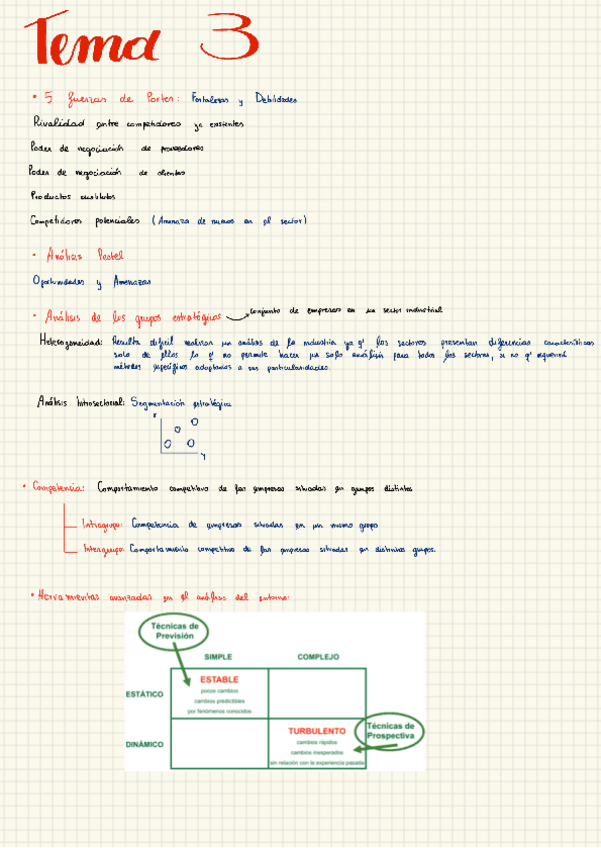 Tema 3
• 5 fuerzas de Porter: Fortalezas y Debilidades
Rivalidad entre competidores ya existentes
Poder de negociación de proveedores
Poder de negociación de clientes
Productos sustitutos
Competidores potenciales (Amenaza de nuevos en el sector)
• Análisis Pestel
Oportunidades y Amenazas
• Análisis de los grupos estratégicos → conjunto de empresas en un sector industrial
Heterogeneidad: Resulta difícil realizar un análisis de la industria ya q' los sectores presentan diferencias características
solo de ellos lo q' no permite hacer un solo análisis para todos los sectores, si no q' requerirá
métodos específicos adaptados a sus particularidades.
Análisis Intrasectorial: Segmentación estratégica
x
y
• Competencia: Comportamiento competitivo de las empresas situadas en grupos distintos
Intragrupo: Competencia de empresas situadas en un mismo grupo
Intergrupo: Comportamiento competitivo de las empresas situadas en distintos grupos.
• Herramientas avanzadas en el análisis del entorno:
Técnicas de
Previsión
SIMPLE COMPLEJO
ESTÁTICO
ESTABLE
pocos cambios
cambios predictibles
por fenómenos conocidos
DINÁMICO
TURBULENTO
cambios rápidos
cambios inesperados
sin relación con la experiencia pasada
Técnicas de
Prospectiva